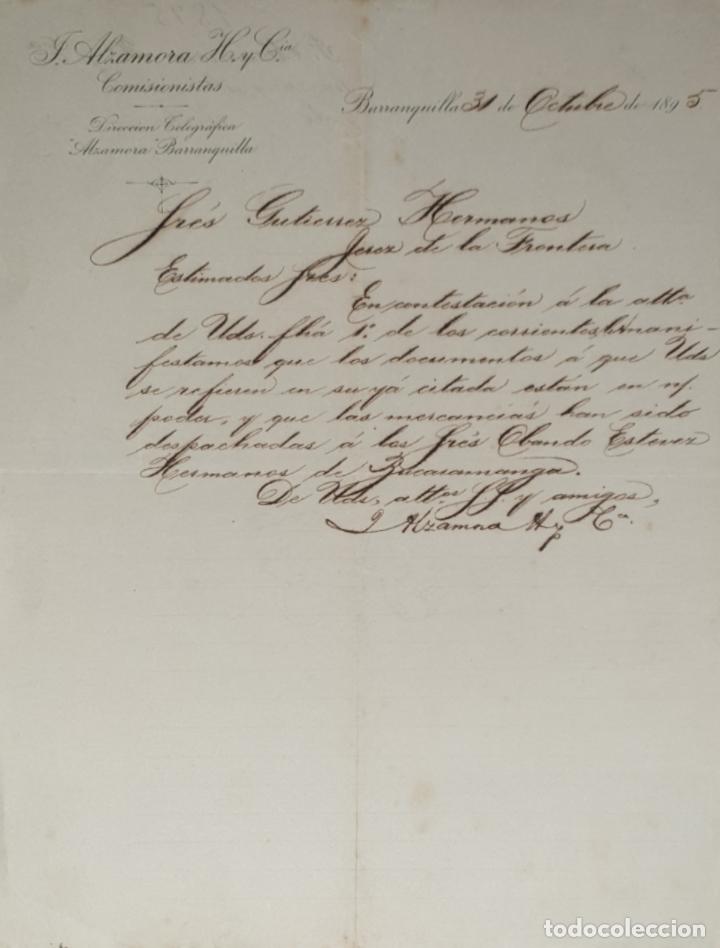 J. Alzamora H. y Cia.
Comisionistas
Direccion Telegráfica
"Alzamora" Barranquilla
Barranquilla 31 de Octubre de 1895
Srés Gutierrez Hermanos
Jerez de la Frontera.
Estimados Srés:
En contestación á la atta.
de Uds. fhá 1º. de los corrientes, mani-
féstamos que los documentos á que Uds
se refieren en su yá citada están en n/.
poder, y que las mercanciás han sido
despachadas á los Srés Obando Estevez
Hermanos de Bucaramanga.
De Uds, attos. SS. y amigos,
J Alzamora H y Ca.
todocoleccion